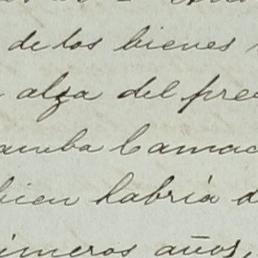 de los bienes
alza del pre
amba Camac
bien habría d
imeros años,